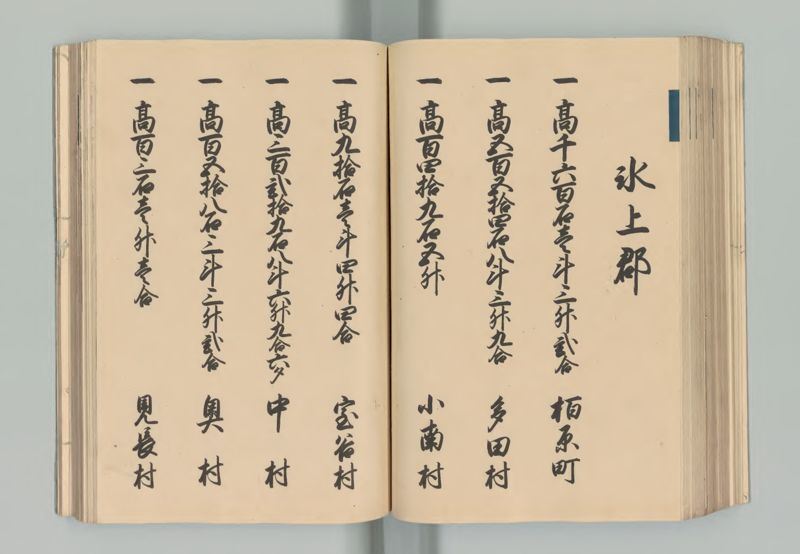 氷上郡
一 高千六百石壱斗三升弐合 柏原町
一 高五百五拾四石八斗三升九合 多田村
一 高百四拾九石五升 小南村
一 高九拾石壱斗四升四合 室谷村
一 高三百弐拾九石八斗六升九合六夕 中村
一 高百五拾八石三斗三升弐合 奥村
一 高百三石壱升壱合 見長村